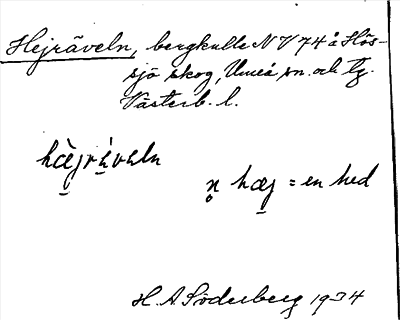 Hejräveln, bergkulle N V 74 å Hös-
sjö skog, Umeå sn. och tg.
Västerb. l.
hæ̀jrǽvəln
n̥ hæj = en hed
H. A. Söderberg 1934